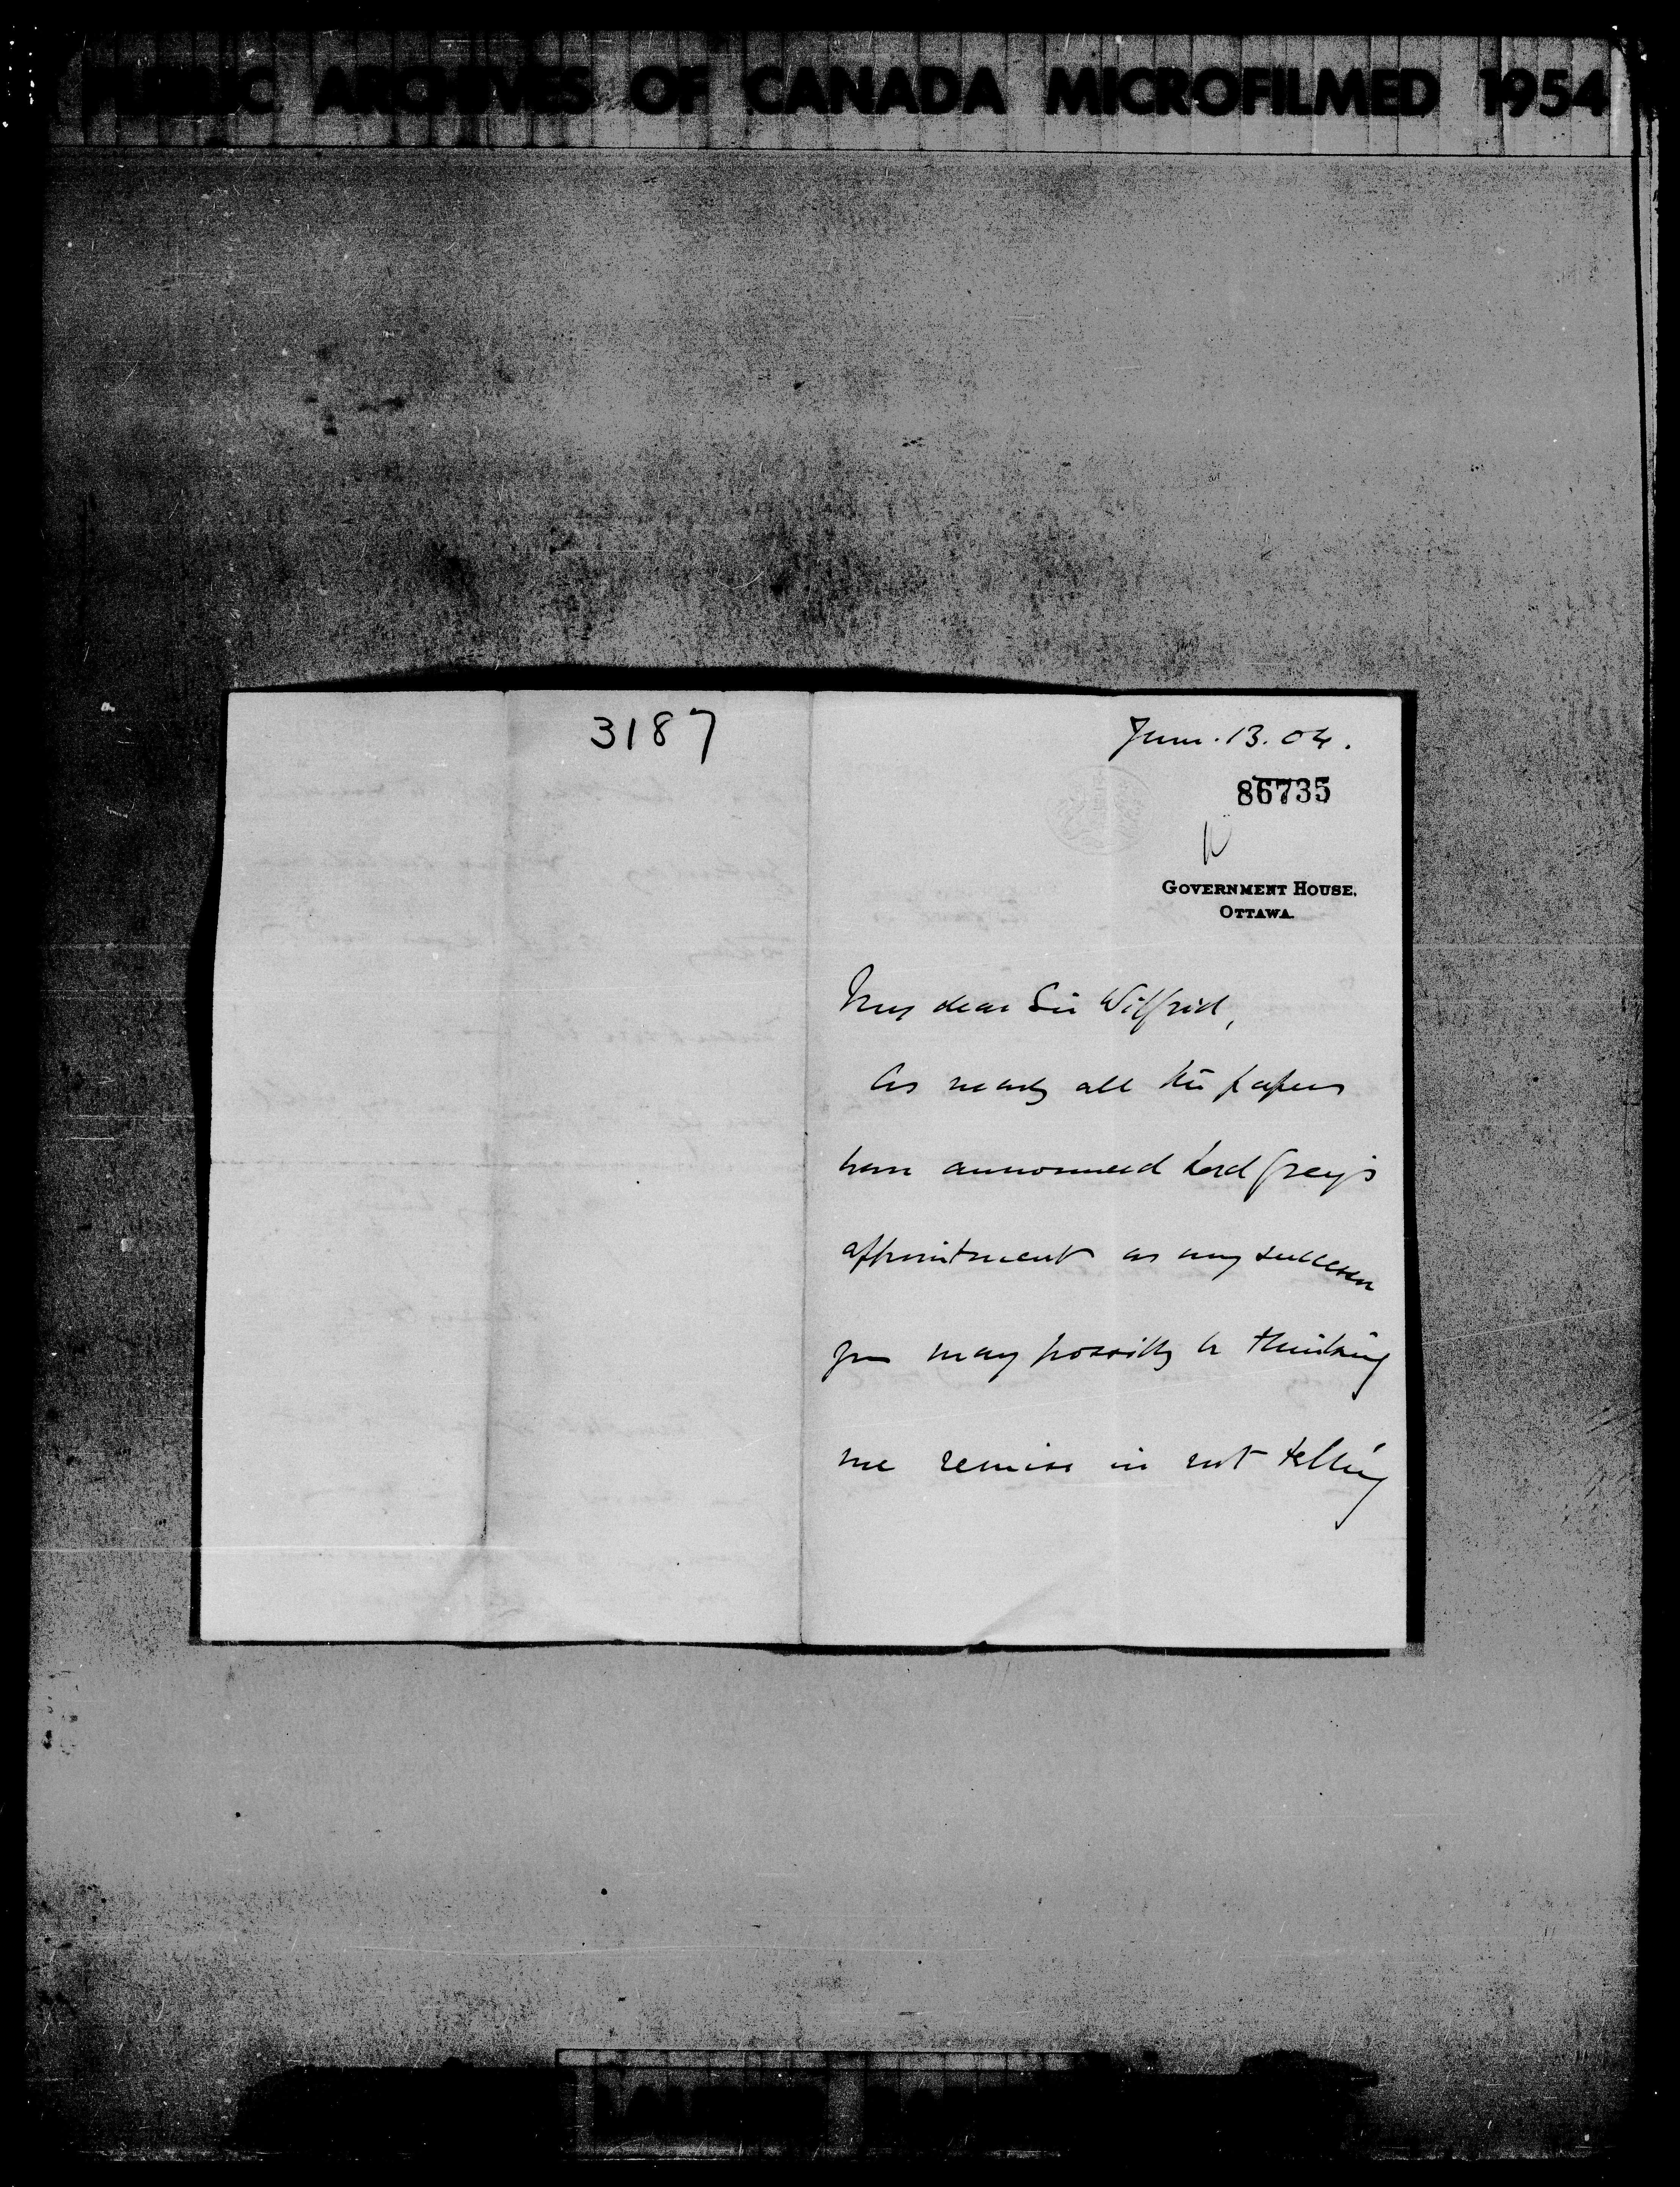 PUBLIC ARCHIVES OF CANADA MICROFILMED 1954
3187
June. 13. 04.
86735
GOVERNMENT HOUSE,
OTTAWA.
My dear Sir Wilfrid,
As nearly all the papers
have announced Lord Grey's
appointment as my successor
you may possibly be thinking
me remiss in not telling